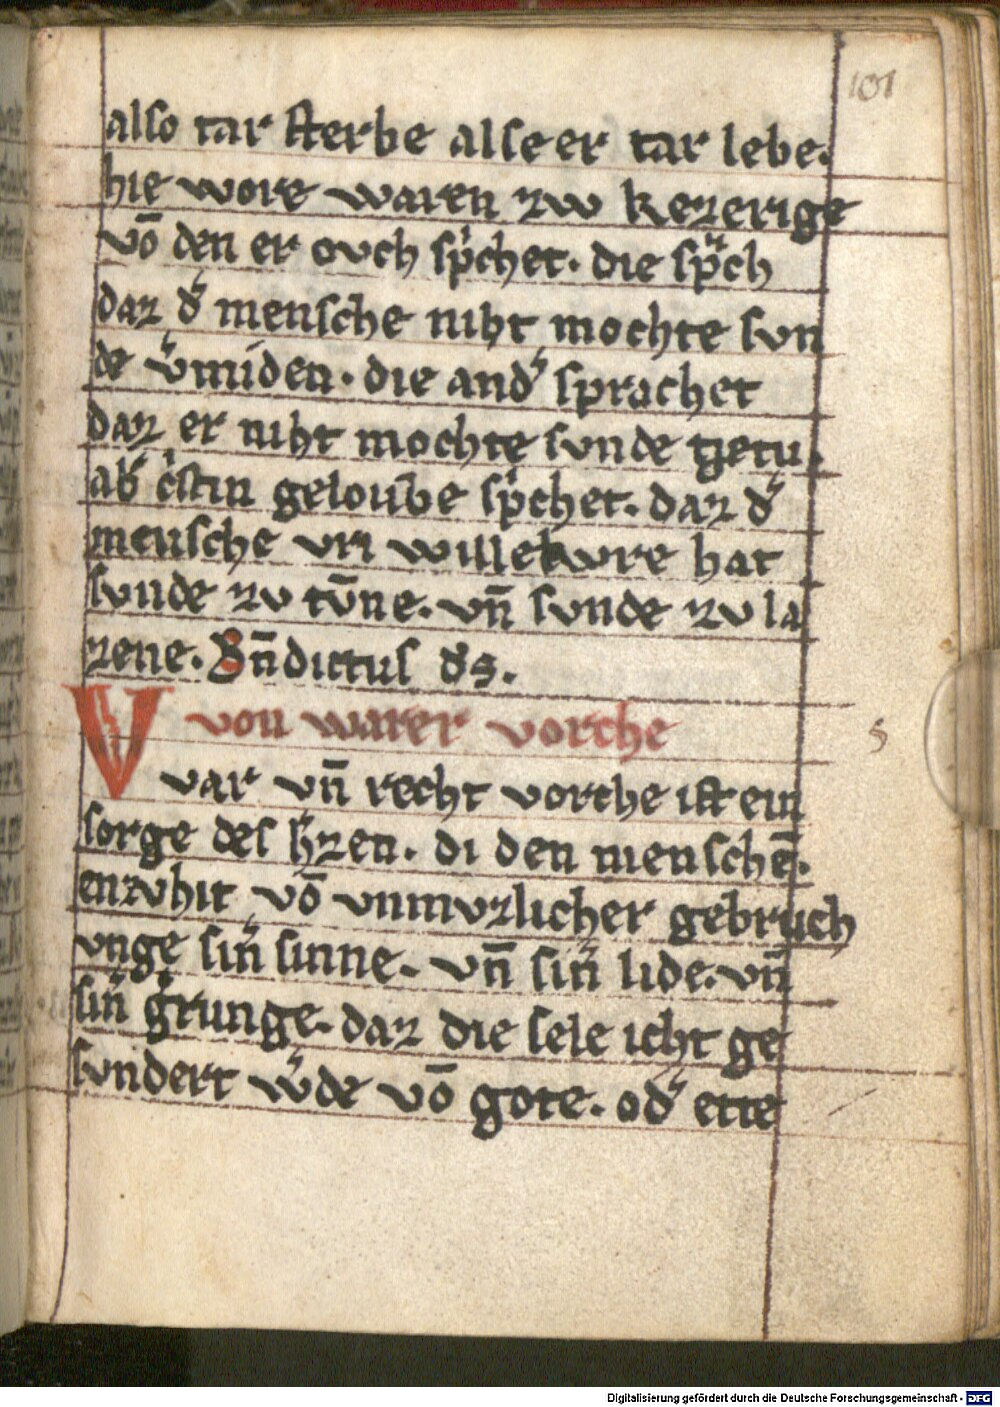 101
also tar sterbe alse er tar lebe.
hie wore waren zw kezerige
vō den er ovch sp̍chet. die sp̾ch
daz d̾ mensche niht mochte svn
de v̾miden. die and̾ sprachet
daz er niht mochte svnde getu.
ab̾ c̍stin geloube sp̍chet. daz d̾
mensche vri willekvre hat
svnde zv tvne. vn̄ svnde zv la
zene. Bn̄dictus ds.
von warer vorthe
5
Vvar vn̄ recht vorthe ist ein
sorge des h̾zen. di den menschē.
enzvhit vō vnnvzlicher gebruch
unge sin̾ sinne. vn̄ sin̾ lide. vn̄
sin̾ g̾runge. daz die sele icht ge
svndert w̾de vō gote. od̾ ette
Digitalisierung gefördert durch die Deutsche Forschungsgemeinschaft - DFG